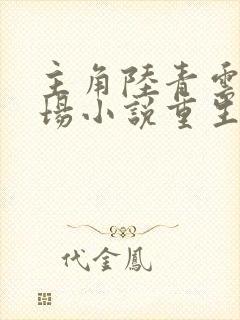 主角陸青雲
場小說重生
代金鳳